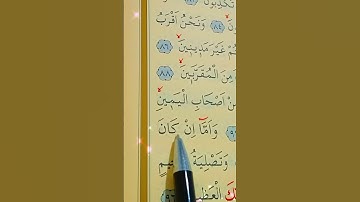 تُكَذِّبُونَ
٨٤ وَنَحْنُ اَقْرَبُ
غَيْرَ مَد۪ين۪ينَۙ ٨٦
مِنَ الْمُقَرَّب۪ينَۙ ٨٨
اَصْحَابِ الْيَم۪ينِۙ
وَاَمَّٓا اِنْ كَانَ
وَتَصْلِيَةُ
الْعَظ۪يمِ ٩٦